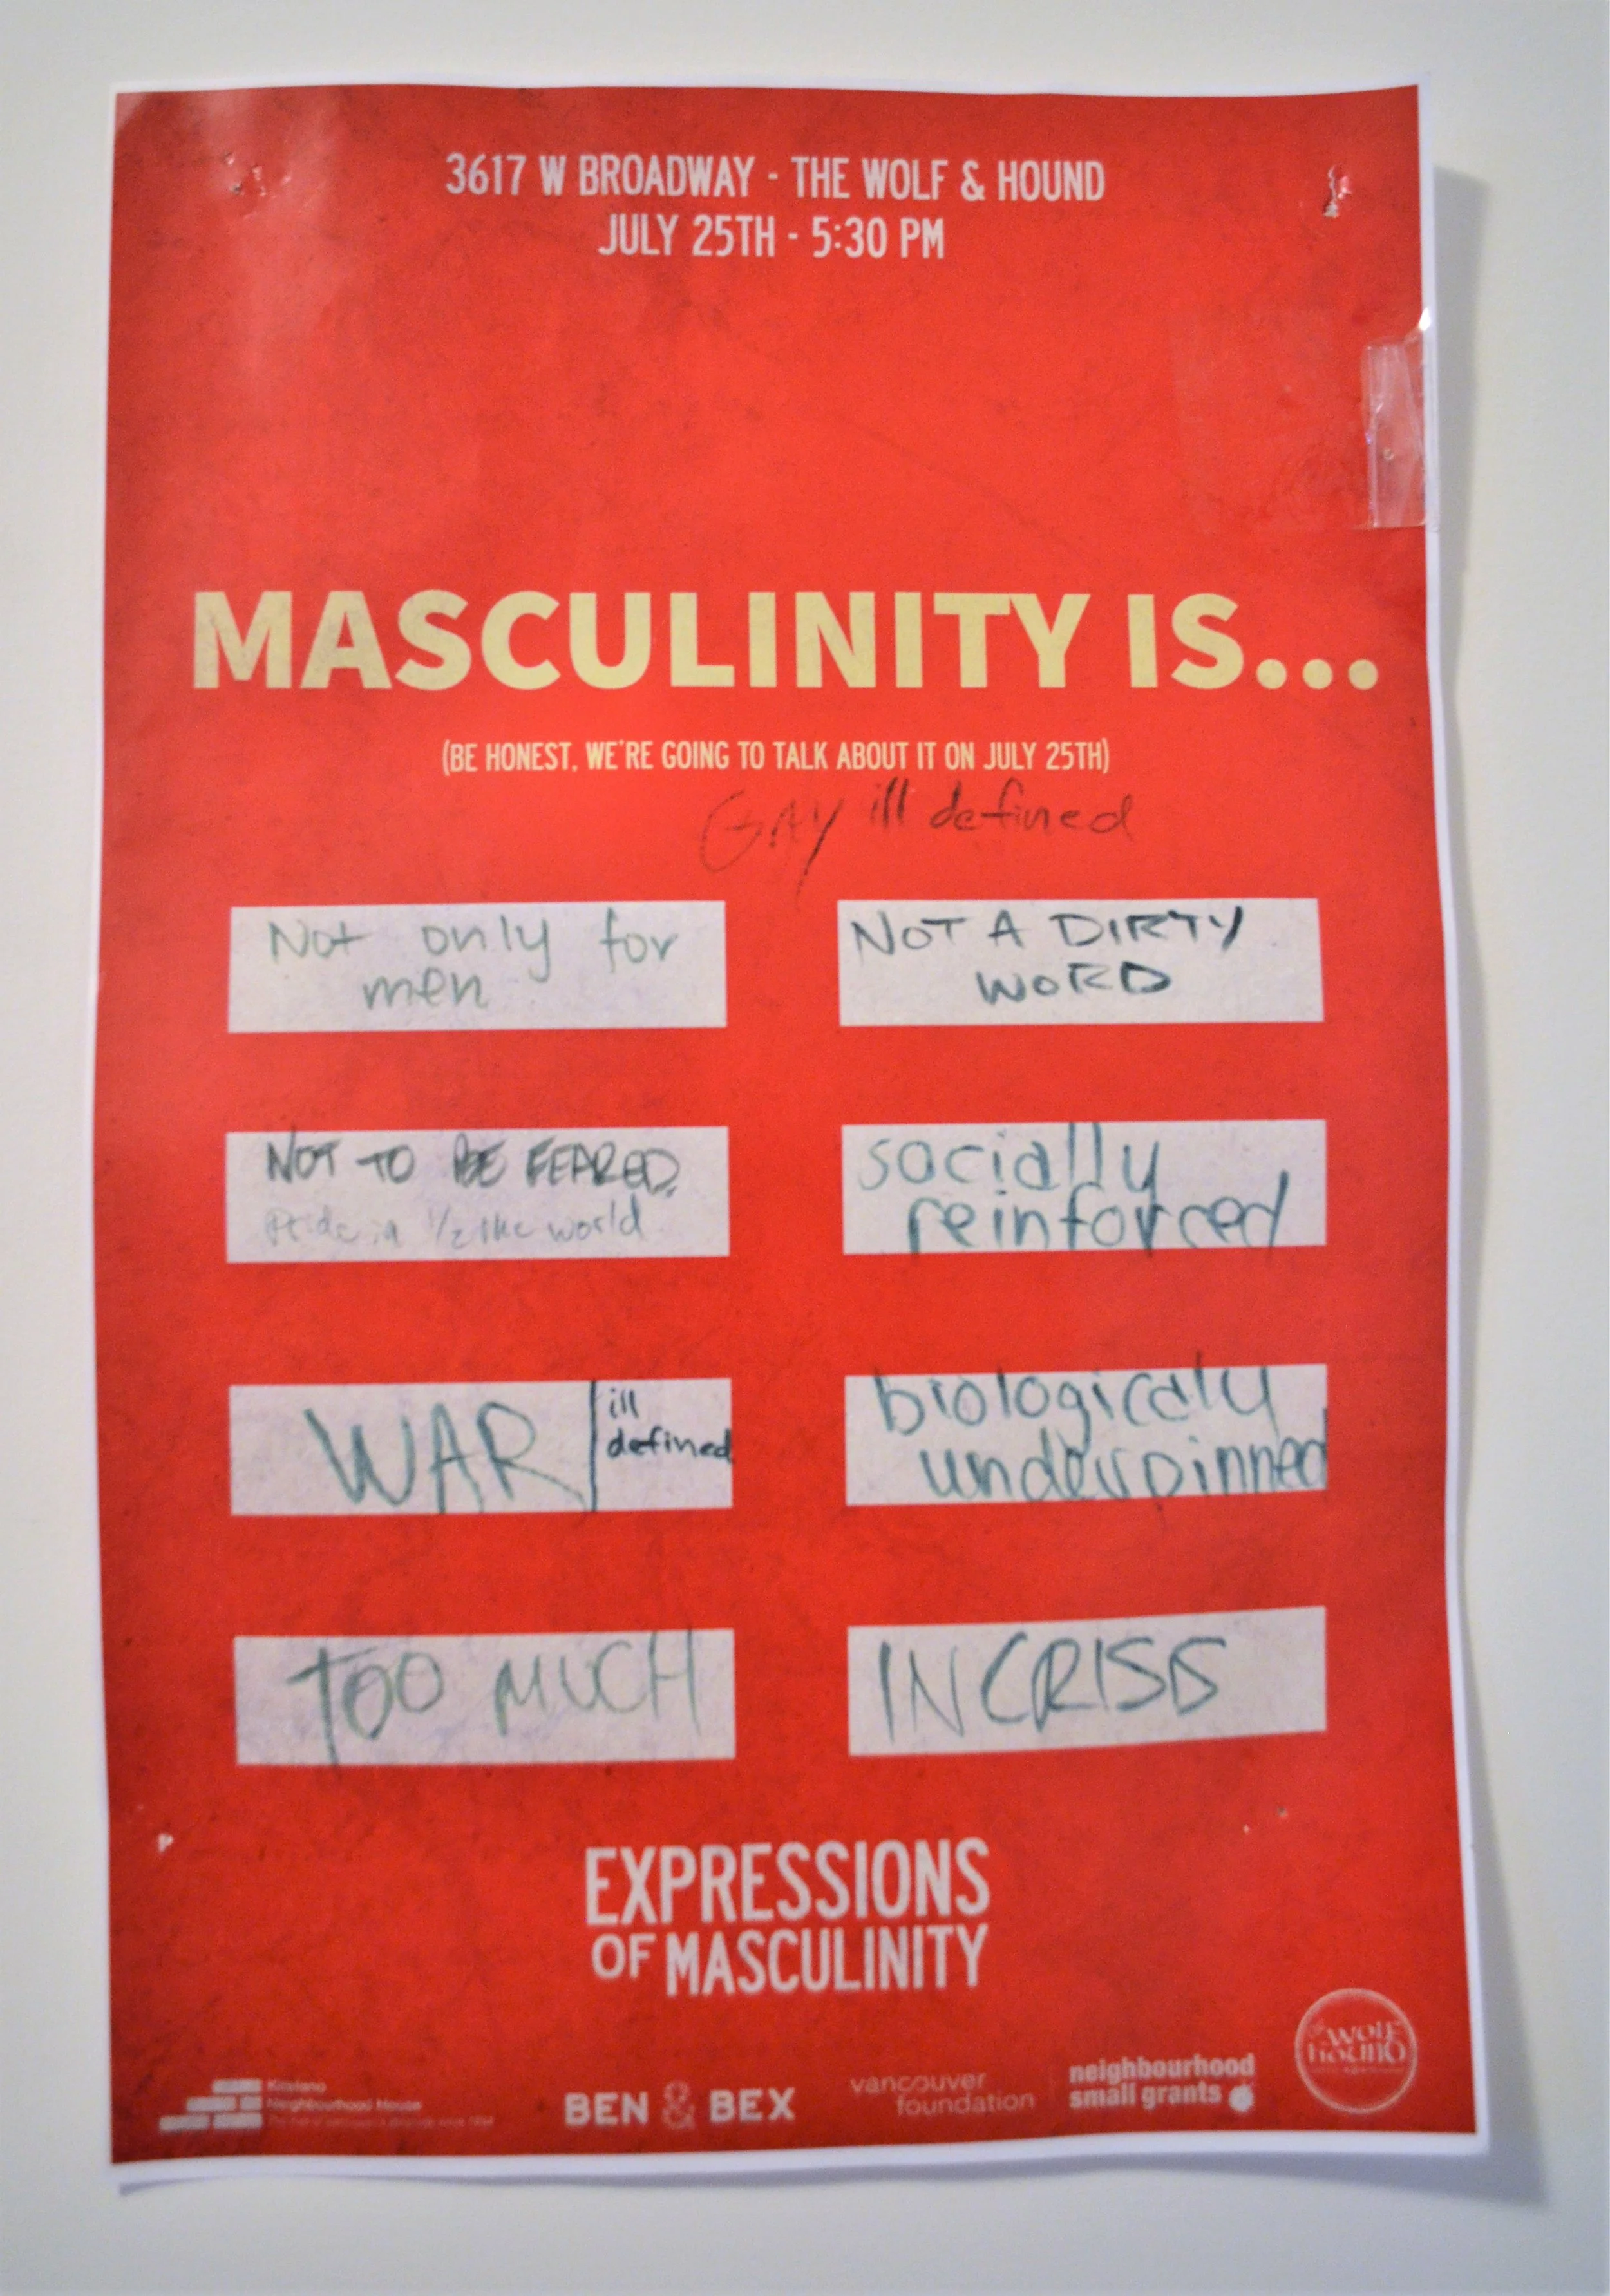 3617 W BROADWAY - THE WOLF & HOUND
JULY 25TH - 5:30 PM
MASCULINITY IS...
(BE HONEST, WE'RE GOING TO TALK ABOUT IT ON JULY 25TH)
GAY ill defined
Not only for
men
NOT A DIRTY
WORD
NOT TO BE FEARED.
in 1/2 the world
socially
reinforced
WAR
ill
defined
biologically
underpinned
TOO MUCH
IN CRISIS
EXPRESSIONS
OF MASCULINITY
Kitsilano
Neighbourhood House
BEN & BEX
vancouver
foundation
neighbourhood
small grants
WOLF
HOUND